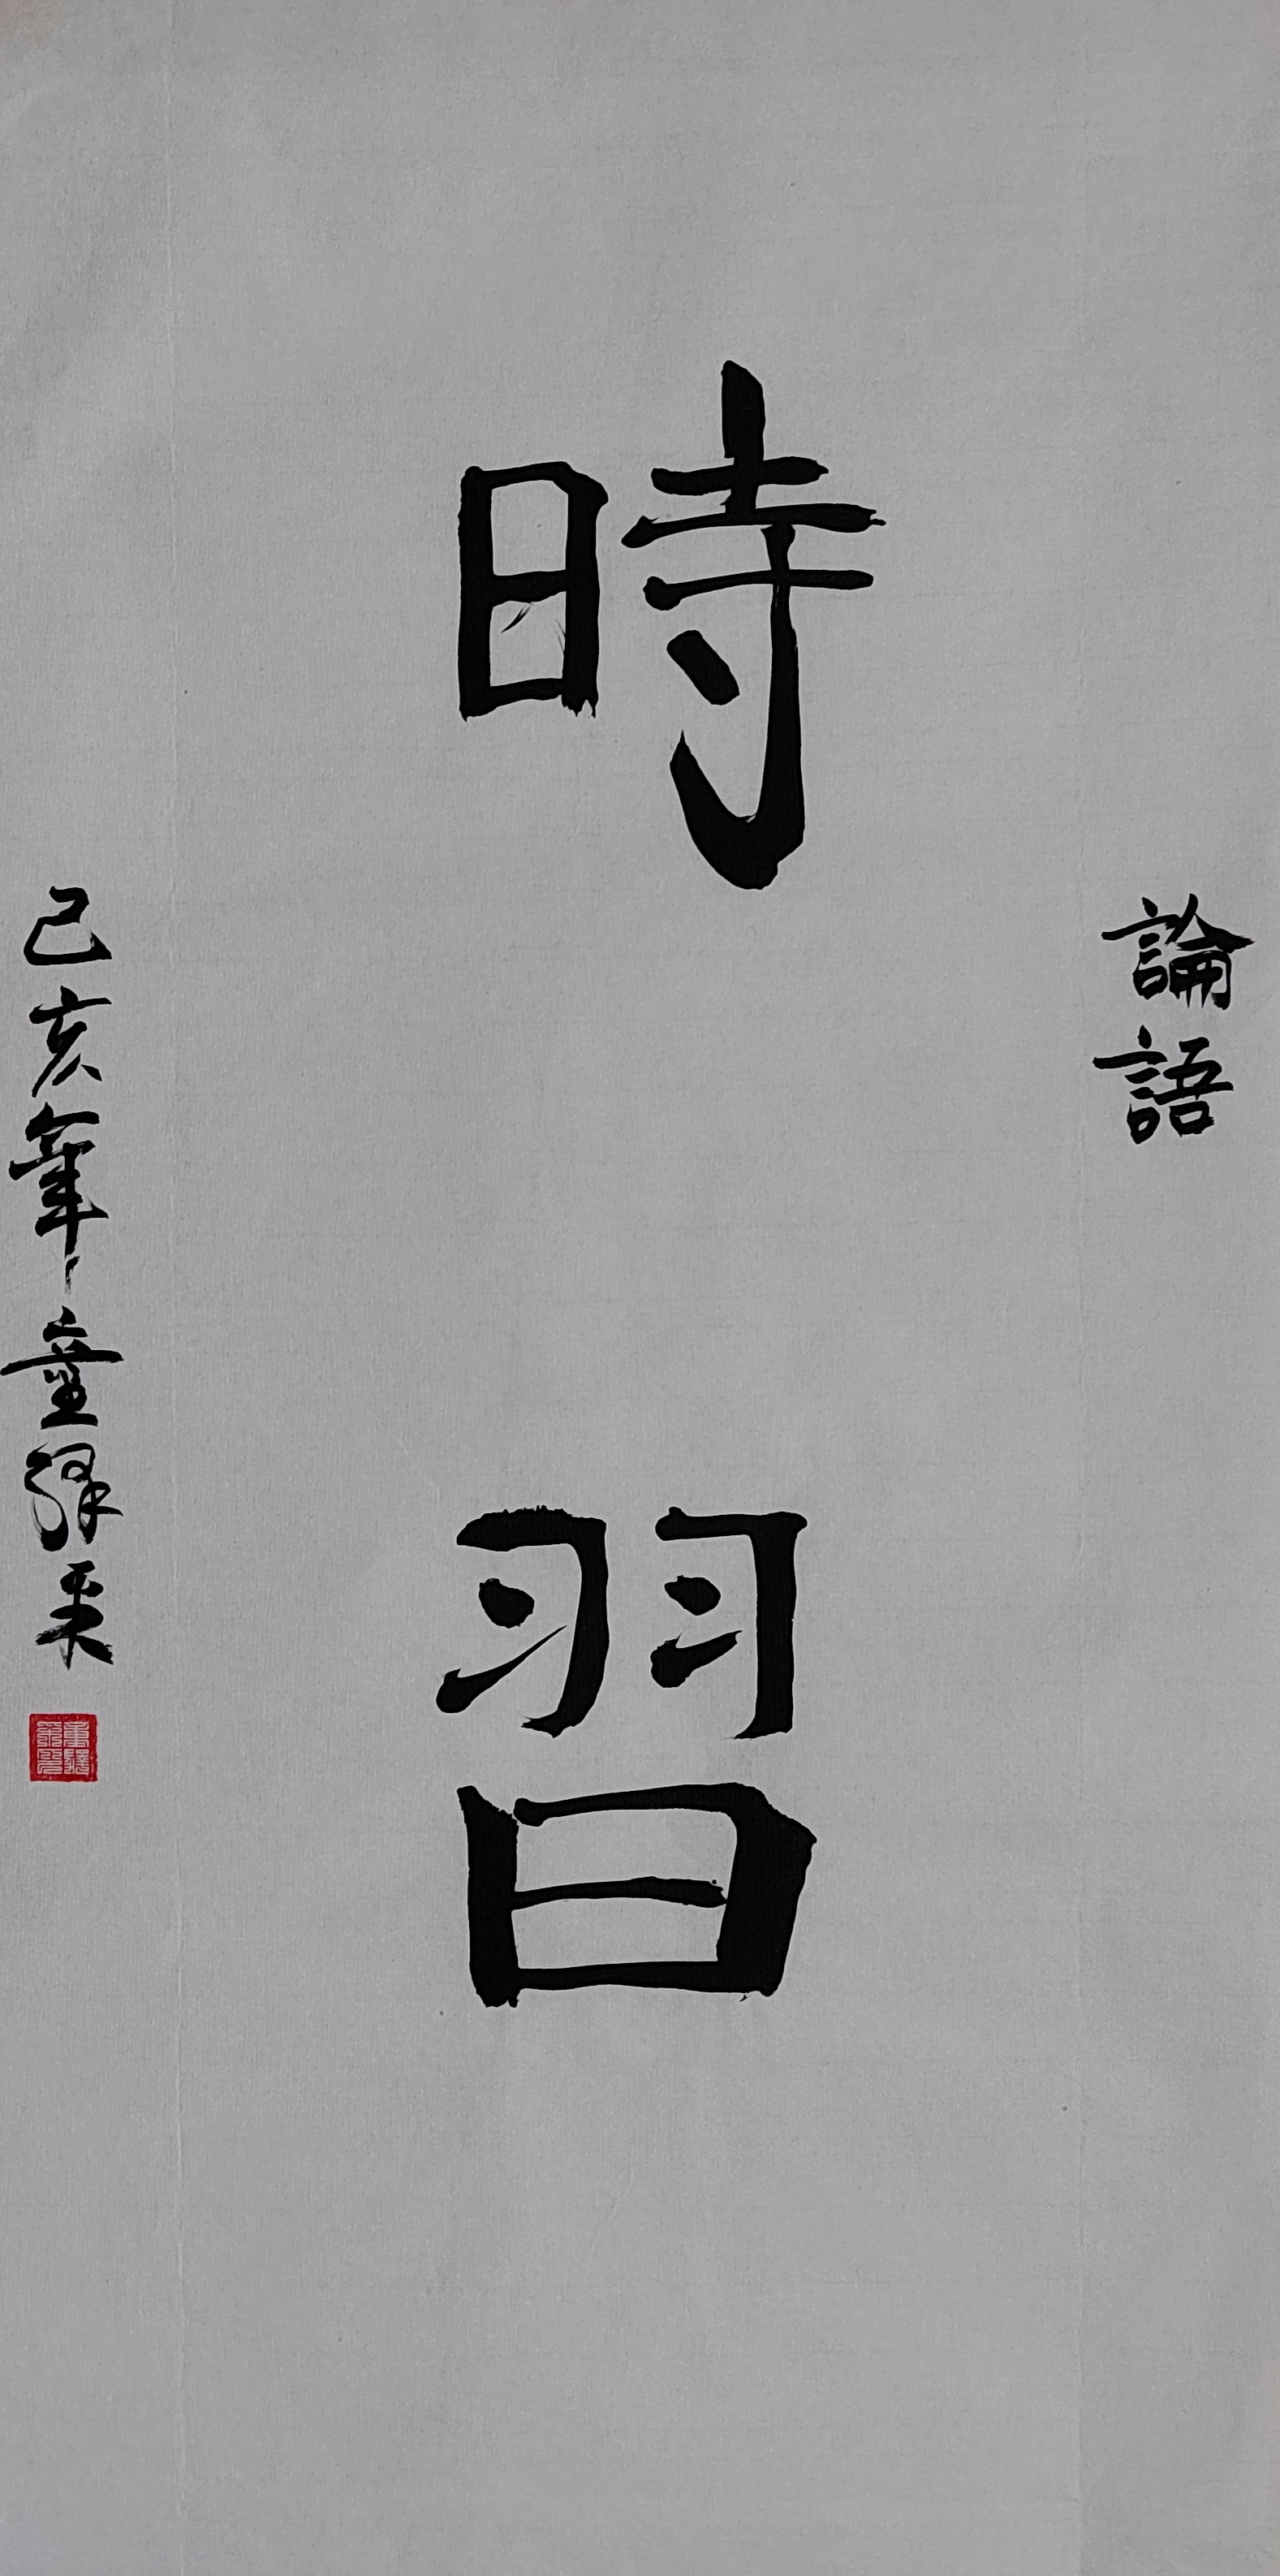 論語
時習
己亥年 童